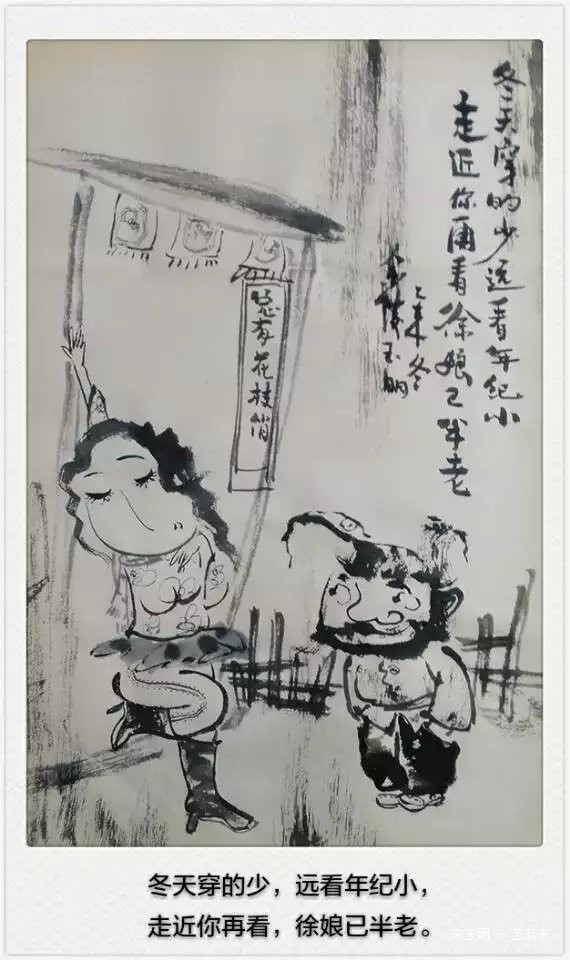 冬天穿的少远看年纪小
走近你再看徐娘已半老
乙未冬
金陵玉明
总有花枝俏
冬天穿的少，远看年纪小，
走近你再看，徐娘已半老。